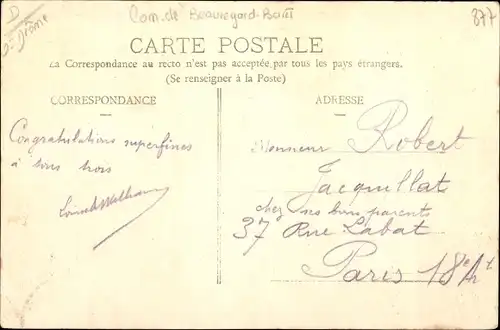 D
Dt Drôme
Com. de Beauregard-Baret
377
CARTE POSTALE
La Correspondance au recto n'est pas acceptée par tous les pays étrangers.
(Se renseigner à la Poste)
CORRESPONDANCE
ADRESSE
Congratulations superfines
à tous trois
Monsieur Robert
Jacquillat
chez ses bons parents
37 Rue Labat
Paris 18e Art